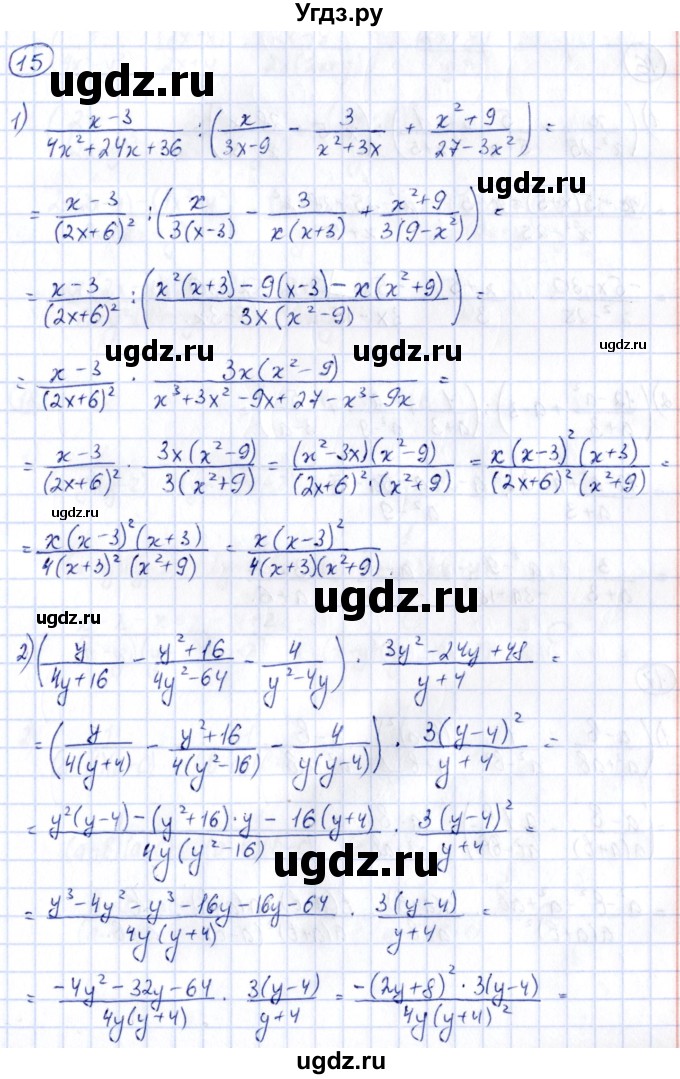 Угдз.ру
15
1) (x-3)/(4x²+24x+36) : (x/(3x-9) - 3/(x²+3x) + (x²+9)/(27-3x²)) =
ugdz.ru
ugdz.ru
= (x-3)/(2x+6)² : (x/(3(x-3)) - 3/(x(x+3)) + (x²+9)/(3(9-x²))) =
= (x-3)/(2x+6)² : ((x²(x+3)-9(x-3)-x(x²+9))/(3x(x²-9))) =
ugdz.ru
ugdz.ru
ugdz.ru
= (x-3)/(2x+6)² · (3x(x²-9))/(x³+3x²-9x+27-x³-9x) =
= (x-3)/(2x+6)² · (3x(x²-9))/(3(x²+9)) = ((x²-3x)(x²-9))/((2x+6)²·(x²+9)) = (x(x-3)²(x+3))/((2x+6)²(x²+9)) =
ugdz.ru
= (x(x-3)²(x+3))/(4(x+3)²(x²+9)) = (x(x-3)²)/(4(x+3)(x²+9)).
ugdz.ru
ugdz.ru
2) (y/(4y+16) - (y²+16)/(4y²-64) - 4/(y²-4y)) · (3y²-24y+48)/(y+4) =
ugdz.ru
= (y/(4(y+4)) - (y²+16)/(4(y²-16)) - 4/(y(y-4))) · (3(y-4)²)/(y+4) =
= (y²(y-4)-(y²+16)·y-16(y+4))/(4y(y²-16)) · (3(y-4)²)/(y+4) =
ugdz.ru
= (y³-4y²-y³-16y-16y-64)/(4y(y+4)) · (3(y-4))/(y+4) =
ugdz.ru
= (-4y²-32y-64)/(4y(y+4)) · (3(y-4))/(y+4) = (-(2y+8)²·3(y-4))/(4y(y+4)²) =
ugdz.ru